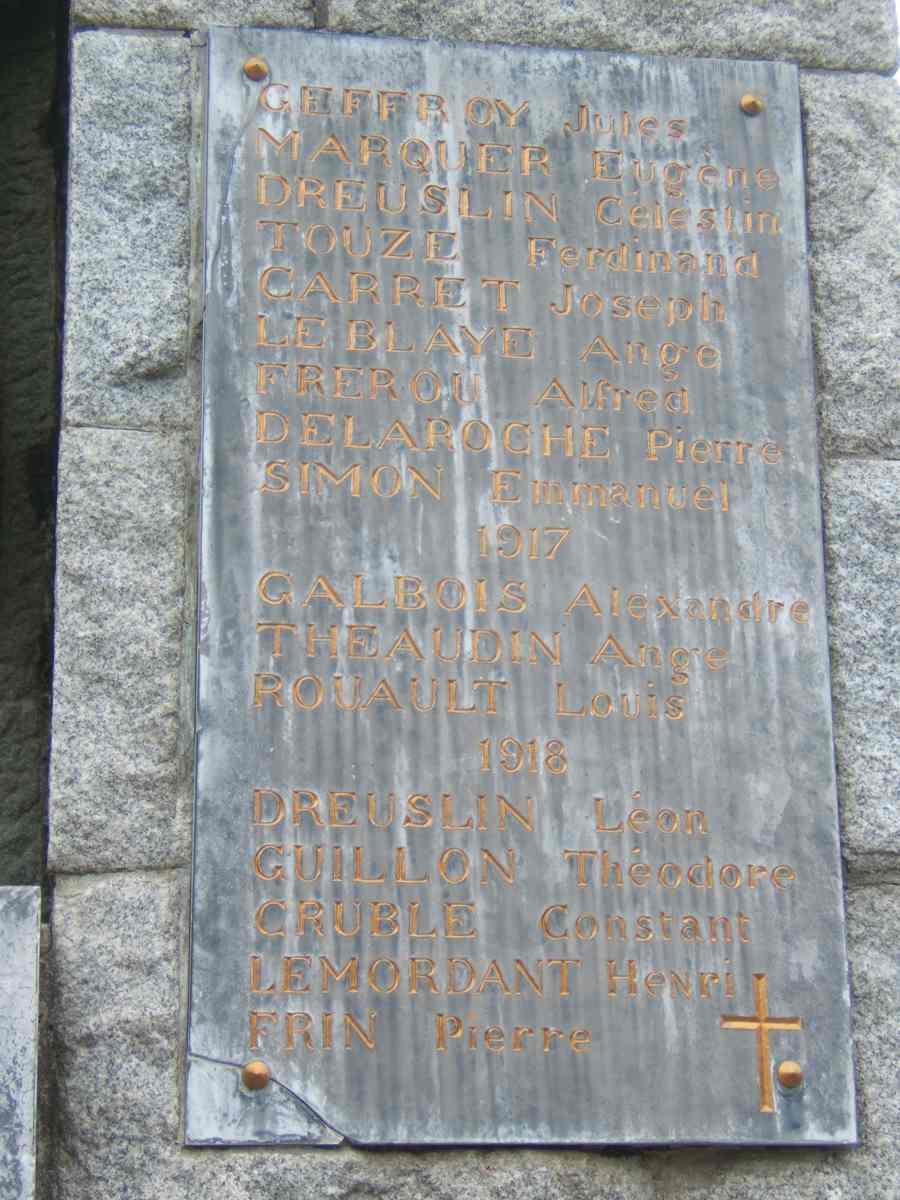 GEFFROY Jules
MARQUER Eugène
DREUSLIN Célestin
TOUZE Ferdinand
CARRET Joseph
LE BLAYE Ange
FREROU Alfred
DELAROCHE Pierre
SIMON Emmanuel
1917
GALBOIS Alexandre
THEAUDIN Ange
ROUAULT Louis
1918
DREUSLIN Léon
GUILLON Théodore
CRUBLE Constant
LEMORDANT Henri
FRIN Pierre